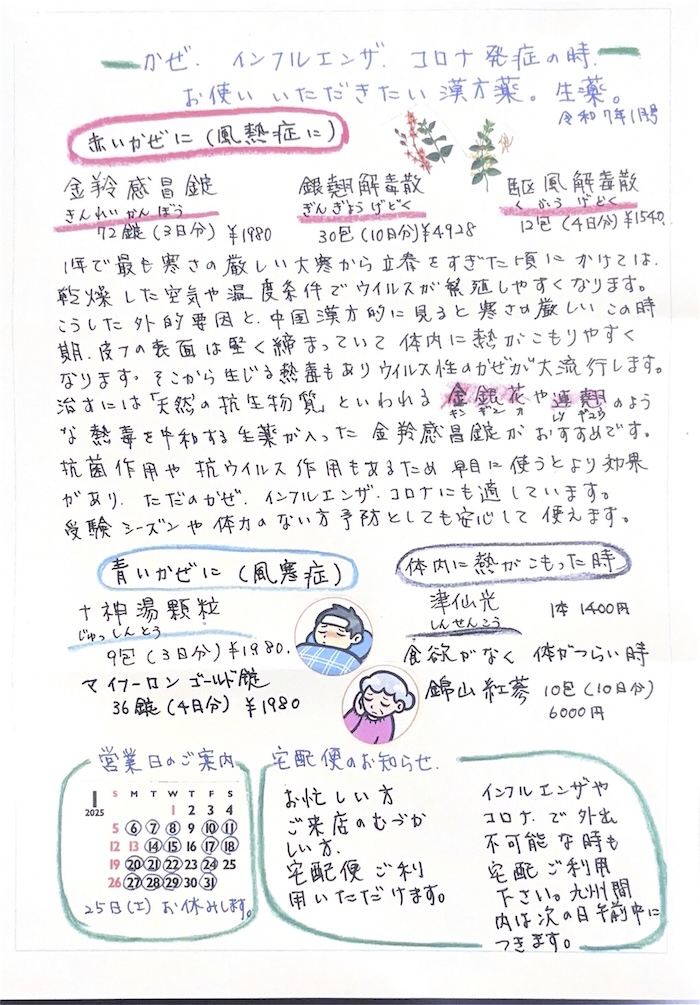 かぜ. インフルエンザ. コロナ発症の時.
お使いいただきたい漢方薬。生薬。
令和7年1月号
赤いかぜに(風熱症に)
金羚感冒錠
きんれいかんぼう
72錠(3日分)¥1980
銀翹解毒散
ぎんぎょうげどく
30包(10日分)¥4928
駆風解毒散
くふうげどく
12包(4日分)¥1540
1年で最も寒さの厳しい大寒から立春をすぎた頃にかけては、
乾燥した空気や温度条件でウイルスが繁殖しやすくなります。
こうした外的要因と、中国漢方的に見ると寒さの厳しいこの時
期、皮フの表面は堅く締まっていて体内に熱がこもりやすく
なります。そこから生じる熱毒もありウイルス性のかぜが大流行します。
治すには「天然の抗生物質」といわれる金銀花や連翹のよう
キンギンカ レンギョウ
な熱毒を中和する生薬が入った金羚感冒錠がおすすめです。
抗菌作用や抗ウイルス作用もあるため早目に使うとより効果
があり、ただのかぜ、インフルエンザ、コロナにも適しています。
受験シーズンや体力のない方予防としても安心して使えます。
青いかぜに(風寒症)
十神湯顆粒
じゅっしんとう
9包(3日分)¥1980.
マイフーロンゴールド錠
36錠(4日分)¥1980
体内に熱がこもった時
津仙光
しんせんこう
1本 1400円
食欲がなく 体がつらい時
錦山紅蔘 10包(10日分)
6000円
営業日のご案内
1
2025
S M T W T F S
1 2 3 4
5 6 7 8 9 10 11
12 13 14 15 16 17 18
19 20 21 22 23 24 25
26 27 28 29 30 31
25日(土)お休みします。
宅配便のお知らせ.
お忙しい方
ご来店のむづか
しい方.
宅配便ご利
用いただけます。
インフルエンザや
コロナで外出
不可能な時も
宅配ご利用
下さい。九州間
内は次の日午前中に
つきます。